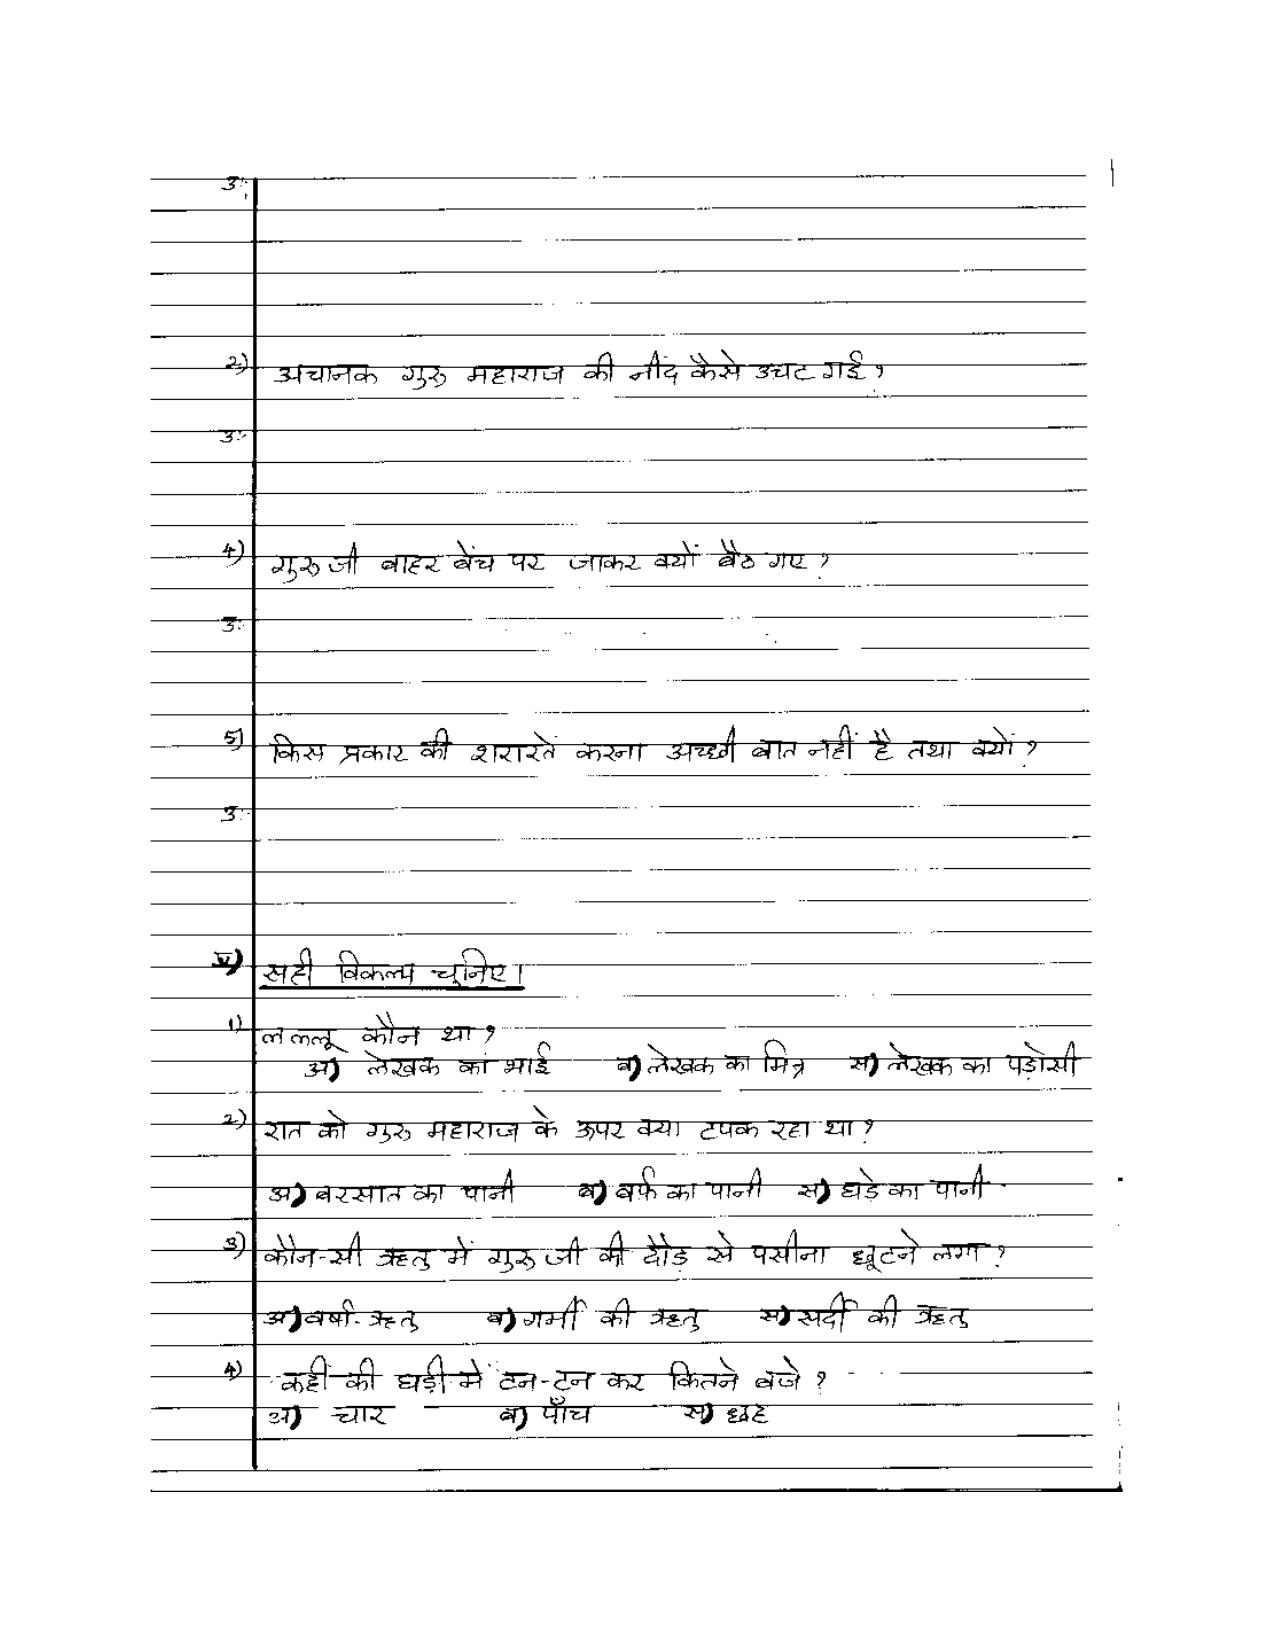 उ:
2) अचानक गुरु महाराज की नींद कैसे उचट गई?
उ:
4) गुरु जी बाहर बेंच पर जाकर क्यों बैठ गए?
उ:
5) किस प्रकार की शरारतें करना अच्छी बात नहीं है तथा क्यों?
उ:
V) सही विकल्प चुनिए।
1) लल्लू कौन था?
अ) लेखक का भाई ब) लेखक का मित्र स) लेखक का पड़ोसी
2) रात को गुरु महाराज के ऊपर क्या टपक रहा था?
अ) बरसात का पानी ब) बर्फ का पानी स) घड़े का पानी
3) कौन-सी ऋतु में गुरु जी की दौड़ से पसीना छूटने लगा?
अ) वर्षा ऋतु ब) गर्मी की ऋतु स) सर्दी की ऋतु
4) कहीं की घड़ी में टन-टन कर कितने बजे?
अ) चार ब) पाँच स) छह